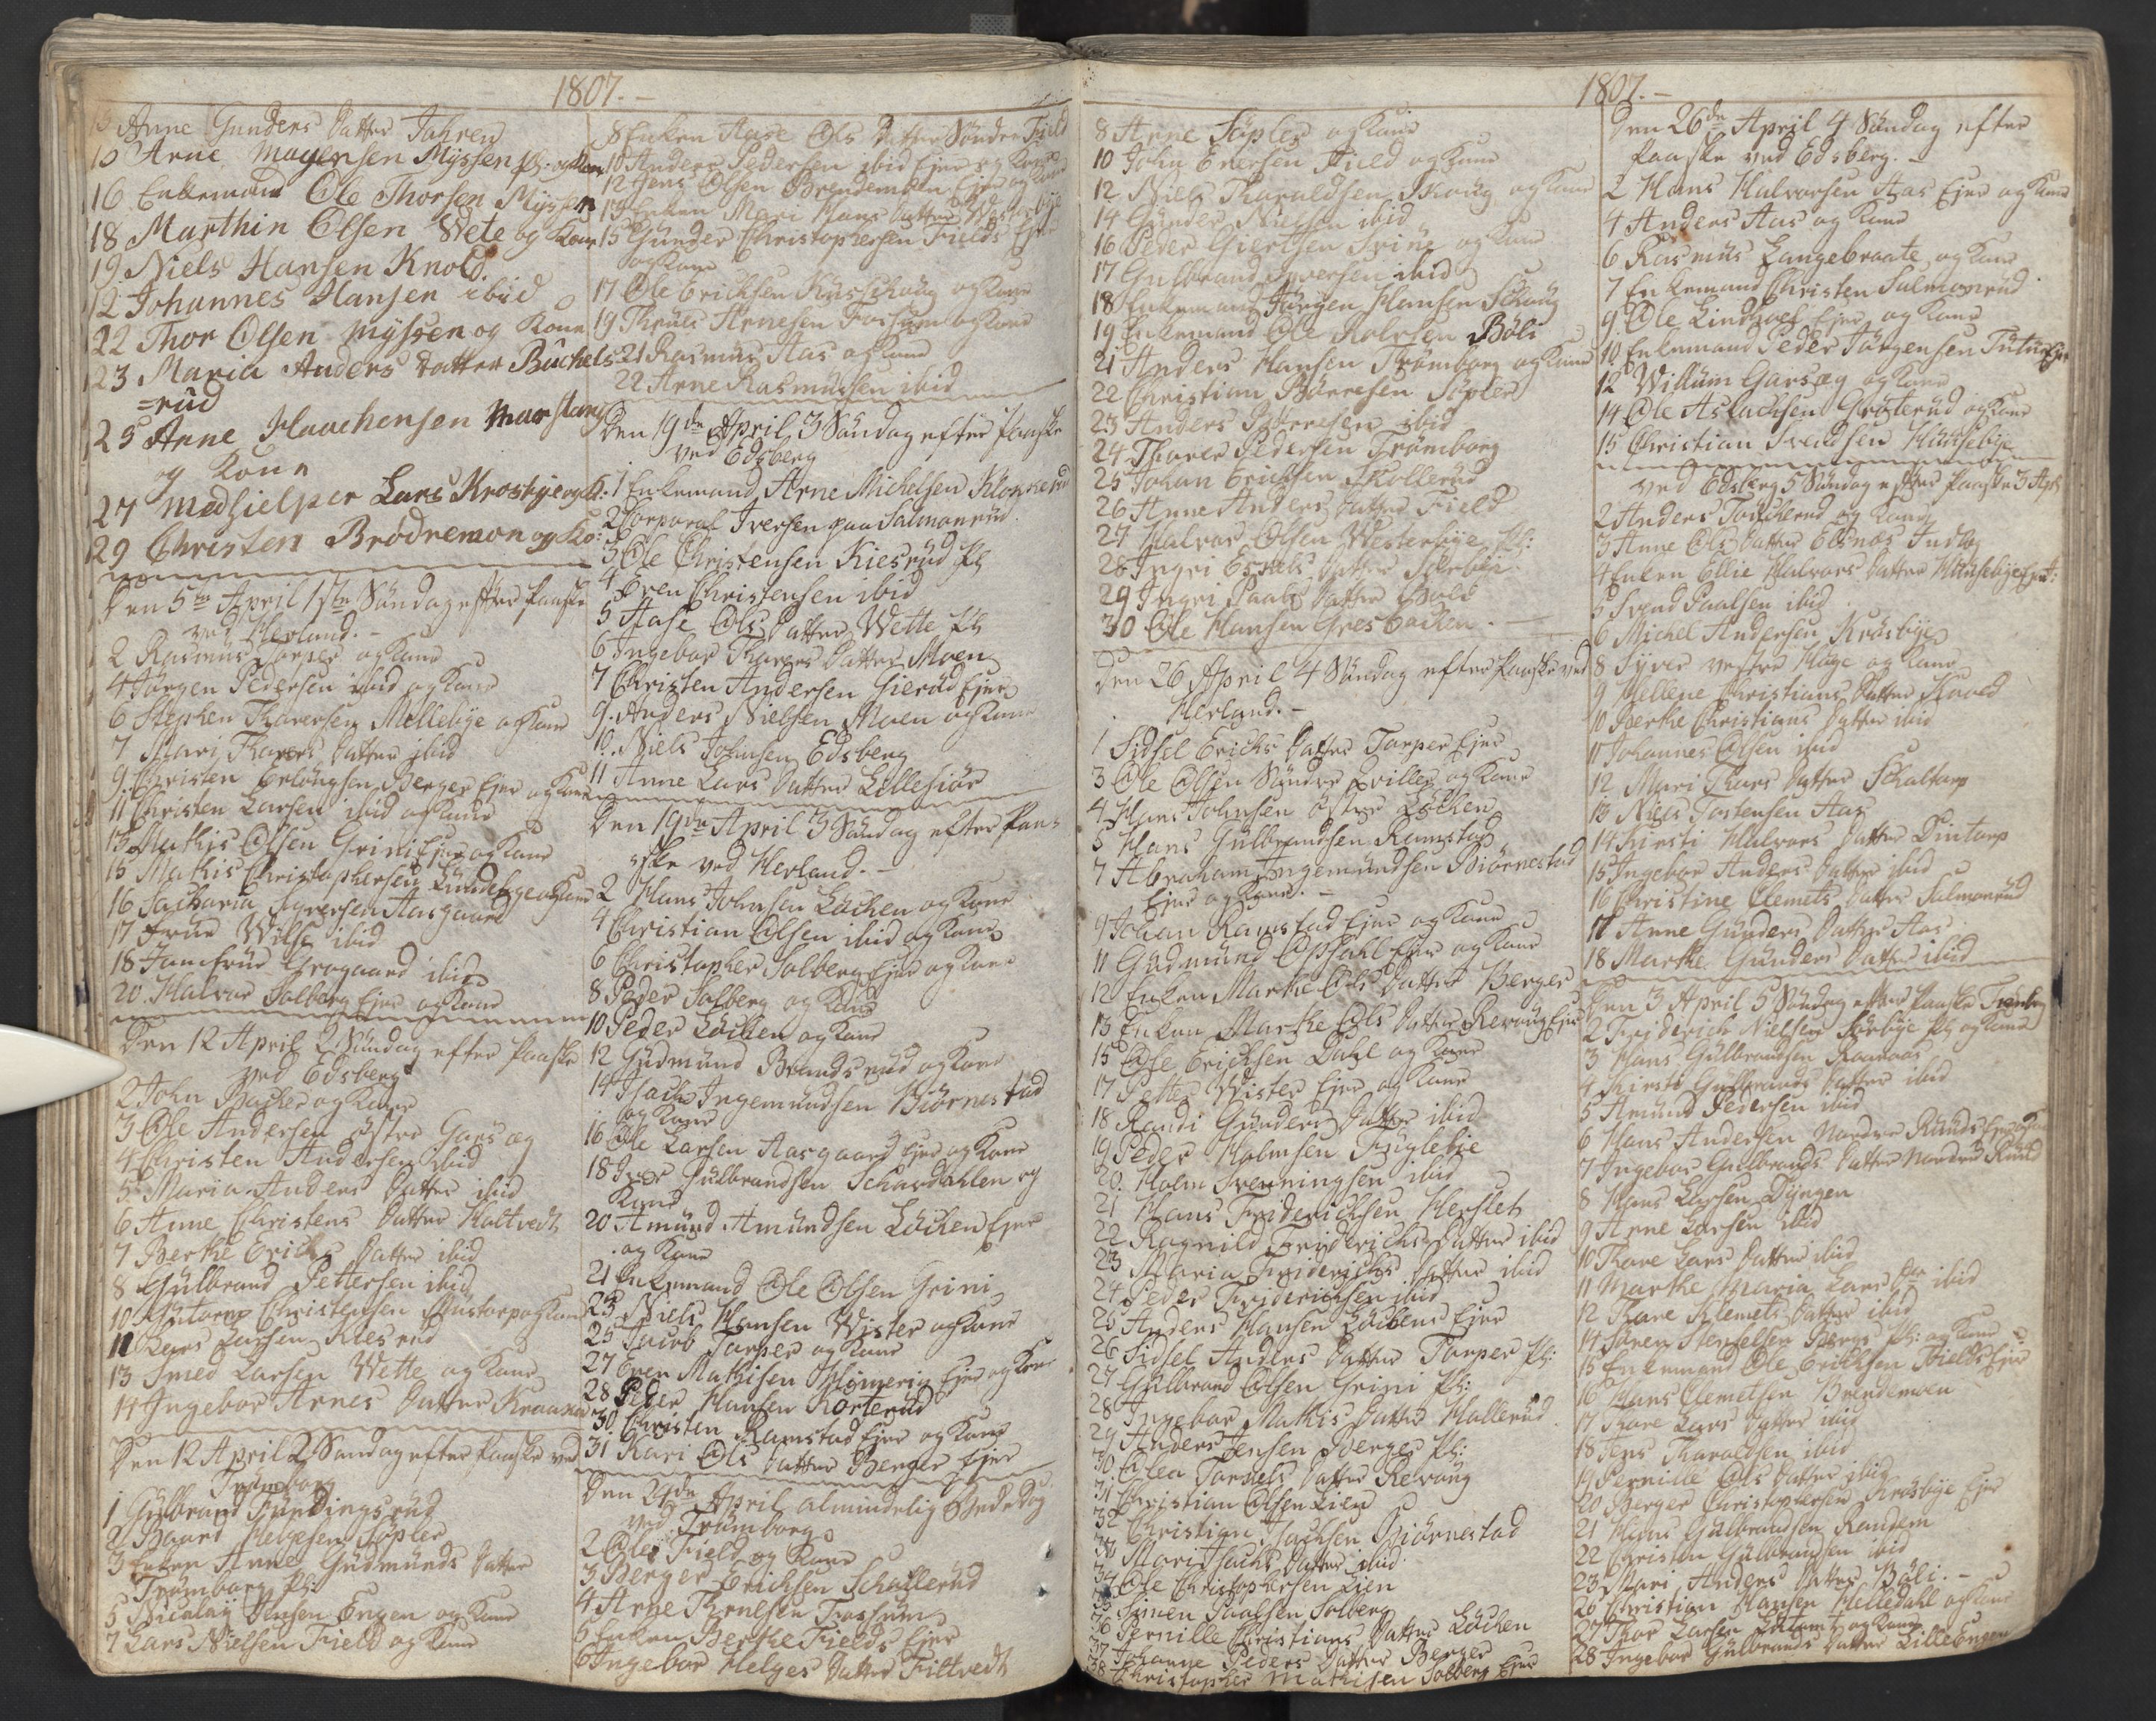 1807.-
Anne Gunders Datter Jahren
15 Arne Mogensen Myssen og Kone
16 Enkemand Ole Thorsen Myssen
18 Marthin Olsen Wete og Kone
19 Niels Hansen Knold.
Johannes Hansen ibid
22 Thor Olsen Myssen og Kone
23 Maria Anders Datter Buchels
=rud
25 Arne Haachensen
og Kone
27 Medhielper Lars Krosbye og K:
29 Christen Brødremoen og Ko:
Den 5te April 1ste Søndag efter Paaske
ved Herland.-
2 Rasmus Torper og Kone
4 Jørgen Pedersen ibid og Kone
6 Stephen Thoresen Millebye og Kone
7 Mari Thores Datter ibid
9 Christen Erlandsen Berger Ejer og Kone
11 Christen Larsen ibid og Kone
13 Mathis Olsen Grini Ejer og Kone
15 Mathis Christophersen og Kone
16 Sacharia Syversen Aasgaard
17 Frue ibid
18 Jomfrue ibid
20 Halvor Solberg Ejer og Kone
Den 12 April 2 Søndag efter Paaske
ved Edsberg
2 John og Kone
3 Ole Andersen østre Garseg
4 Christen Andersen ibid
5 Maria Anders Datter ibid
6 Anne Christens Datter Haltvedt
7 Berthe Erichs Datter ibid
8 Gulbrand Pettersen ibid
10 Guttorm Christensen og Kone
11 Lars Larsen Kiesrud
13 Larsen Wette og Kone
14 Ingebor Arnes Datter
Den 12 April 2 Søndag efter Paaske ved
Trømborg
1 Gulbrand
2 Baard Helgesen Søpler
3 Enken Anne Gudmunds Datter
Trømborg
5 Nicolay Jensen Engen og Kone
7 Lars Nielsen Field og Kone
8 Enken Aase Ols Datter Søndre Field
10 Anders Pedersen ibid Ejer og Kone
12 Jens Olsen Brendemoen Ejer og Kone
13 Enken Mari Hans Datter Westerbye
15 Gunder Christophersen Fields Ejer
og Kone
17 Ole Erichsen og Kone
19 Arnesen Fossum og Kone
21 Rasmus Aas og Kone
22 Arne Rasmussen ibid
Den 19de April 3 Søndag efter Paaske
ved Edsberg
1 Enkemand Arne Michelsen
2 Corporal Iversen paa Salmonrud
3 Ole Christensen Kiesrud
4 Even Christensen ibid
5 Aase Ols Datter Wette
6 Ingebor Thores Datter Moen
7 Christen Andersen Gierud Ejer
9 Anders Nielsen Moen og Kone
10 Niels Johnsen Edsberg
11 Anne Lars Datter Lillesiør
Den 19de April 3 Søndag efter Paa=
ske ved Herland.-
2 Hans Johnsen Løchen og Kone
4 Christian Olsen ibid og Kone
6 Christopher Solberg Ejer og Kone
8 Peder Solberg og Kone
10 Peder Løchen og Kone
12 Gudmund Brandsrud og Kone
14 Isach Ingemundsen Biørnestad
og Kone
16 Ole Larsen Aasgaard Ejer og Kone
18 Iver Gulbrandsen Schardahlen og
Kone
20 Amund Amundsen Løchen Ejer
og Kone
21 Enkemand Ole Olsen Grini
23 Niels Hansen Wister og Kone
25 Jacob Torper og Kone
27 Even Mathisen Ejer og Kone
28 Peder Hansen Korterud
30 Christen Ramstad Ejer og Kone
31 Kari Ols Datter Berger Ejer
Den April almindelig Bededag
ved Trømborg
2 Ole Field og Kone
3 Berger Erichsen Schøllerud
4 Arne Arnesen Fossum
5 Enken Berthe Fields Ejer
6 Ingebor Helges Datter Filtvedt
1807.-
8 Arne Søpler og Kone
10 John Evensen Field og Kone
12 Niels Haraldsen Skoug og Kone
14 Gunder Nielsen ibid
16 Peder og Kone
17 Gulbrand Iversen ibid
18 Enkemand Jørgen Hansen Schoug
19 Enkemand Ole Bøli
21 Anders Hansen Trømborg og Kone
22 Christian Søpler
23 Anders ibid
24 Thorer Pedersen Trømborg
25 Johan Erichsen Skollerud
26 Anne Anders Datter Field
27 Halvor Olsen Westerbye
28 Ingri Datter
29 Ingri Paals Datter
30 Ole Hansen Gresbachen.
Den 26 April 4 Søndag efter Paaske ved
Herland.-
1 Sidsel Erichs Datter Torper Ejer
3 Ole Olsen Søndre og Kone
4 Hans Johnsen østre Løchen
5 Hans Gulbrandsen Ramstad
7 Abraham Ingemundsen Biørnestad
Ejer og Kone.-
9 Johan Ramstad Ejer og Kone
11 Gudmund Opsahl Ejer og Kone
12 Enken Marthe Ols Datter Berger
13 Enken Marthe Ols Datter Revoug Ejer
15 Ole Erichsen Dahl og Kone
17 Petter Wister Ejer og Kone
18 Randi Gunders Datter ibid
19 Peder Holmsen Fuglebie
20 Holm Svenningsen ibid
21 Hans Friderichsen Herslet
22 Ragnild Friderichs Datter ibid
23 Maria Friderichs Datter ibid
24 Peder Friderichsen ibid
25 Anders Hansen Løchens Ejer
26 Sidsel Anders Datter Torper
27 Gulbrand Olsen Grini
28 Ingebor Mathis Datter Hallerud
29 Anders Jensen Berger
30 Olea Datter Revoug
31 Christian Olsen Lien
32 Christian Isachsen Biørnestad
33 Mari Isachs Datter ibid
34 Ole Christophersen Lien
35 Simen Paalsen Solberg
36 Pernille Christians Datter Løchen
37 Johanne Peders Datter Berger
38 Christopher Mathisen Solberg Ejer
Den 26de April 4 Søndag efter
Paaske ved Edsberg.-
2 Hans Halvorsen Aas Ejer og Kone
4 Anders Aas og Kone
6 Rasmus Langebraate og Kone
7 Enkemand Christen Salmonrud
9 Ole Ejer og Kone
10 Enkemand Peder Jørgensen
12 Willum Garseg og Kone
14 Ole Aslachsen Grøterud og Kone
15 Christian Svendsen
ved Edsberg 5 Søndag efter Paaske 3 Apl
2 Anders og Kone
3 Anne Ols Datter
4 Enken Ellie Halvors Datter
5 Svend Paalsen ibid
6 Michel Andersen Krosbye
8 Syver vestre og Kone
9 Hellene Christians Datter
10 Berthe Christians Datter ibid
11 Johannes Olsen ibid
12 Mari Thors Datter
13 Niels Tostensen Aas
14 Kirsti Halvors Datter
15 Ingebor Anders Datter ibid
16 Christine Clemets Datter Salmonrud
17 Anne Gunders Datter Aas
18 Marthe Gunders Datter ibid
Den 3 April 5 Søndag efter Paaske
2 Friderich Nielsen og Kone
3 Hans Gulbrandsen
4 Kirsti Gulbrands Datter ibid
5 Amund Pedersen ibid
6 Hans Andersen Nordre Ejer og Kone
7 Ingebor Gulbrands Datter Nordre
8 Hans Larsen Dyngen
9 Arne Larsen ibid
10 Thore Lars Datter ibid
11 Marthe Maria Lars Dtr ibid
12 Thore Klemets Datter ibid
14 Søren og Kone
15 Enkemand Ole Erichsen Fields Ejer
16 Hans Clemetsen Brendemoen
17 Thore Lars Datter ibid
18 Jens Thoraldsen ibid
19 Pernille Ols Datter ibid
20 Berger Christophersen Krosbye Ejer
21 Hans Gulbrandsen Randem
22 Christen Gulbrandsen ibid
23 Mari Anders Datter Bøli.-
25 Christian Hansen Helledahl og Kone
27 Thor Larsen og Kone
28 Ingebor Gulbrands Datter Lille Engen